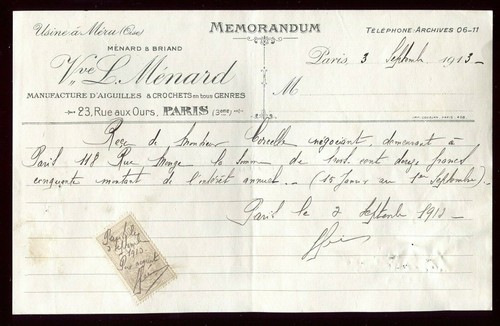 Usine à Méru (Oise)
MEMORANDUM
TÉLÉPHONE: ARCHIVES 06-11
MÉNARD & BRIAND
Vve L. Ménard
Paris, 3 Septembre 1913
M
MANUFACTURE D'AIGUILLES & CROCHETS en tous GENRES
23, Rue aux Ours, PARIS (3ème)
Reçu de Monsieur négociant, demeurant à
Paris 112 Rue Monge la somme de trois cent douze francs
cinquante montant de l'intérêt annuel. (15 Janvier au 1er Septembre)
Paris le 2 Septembre 1913
Paris le
2 Septembre
1913